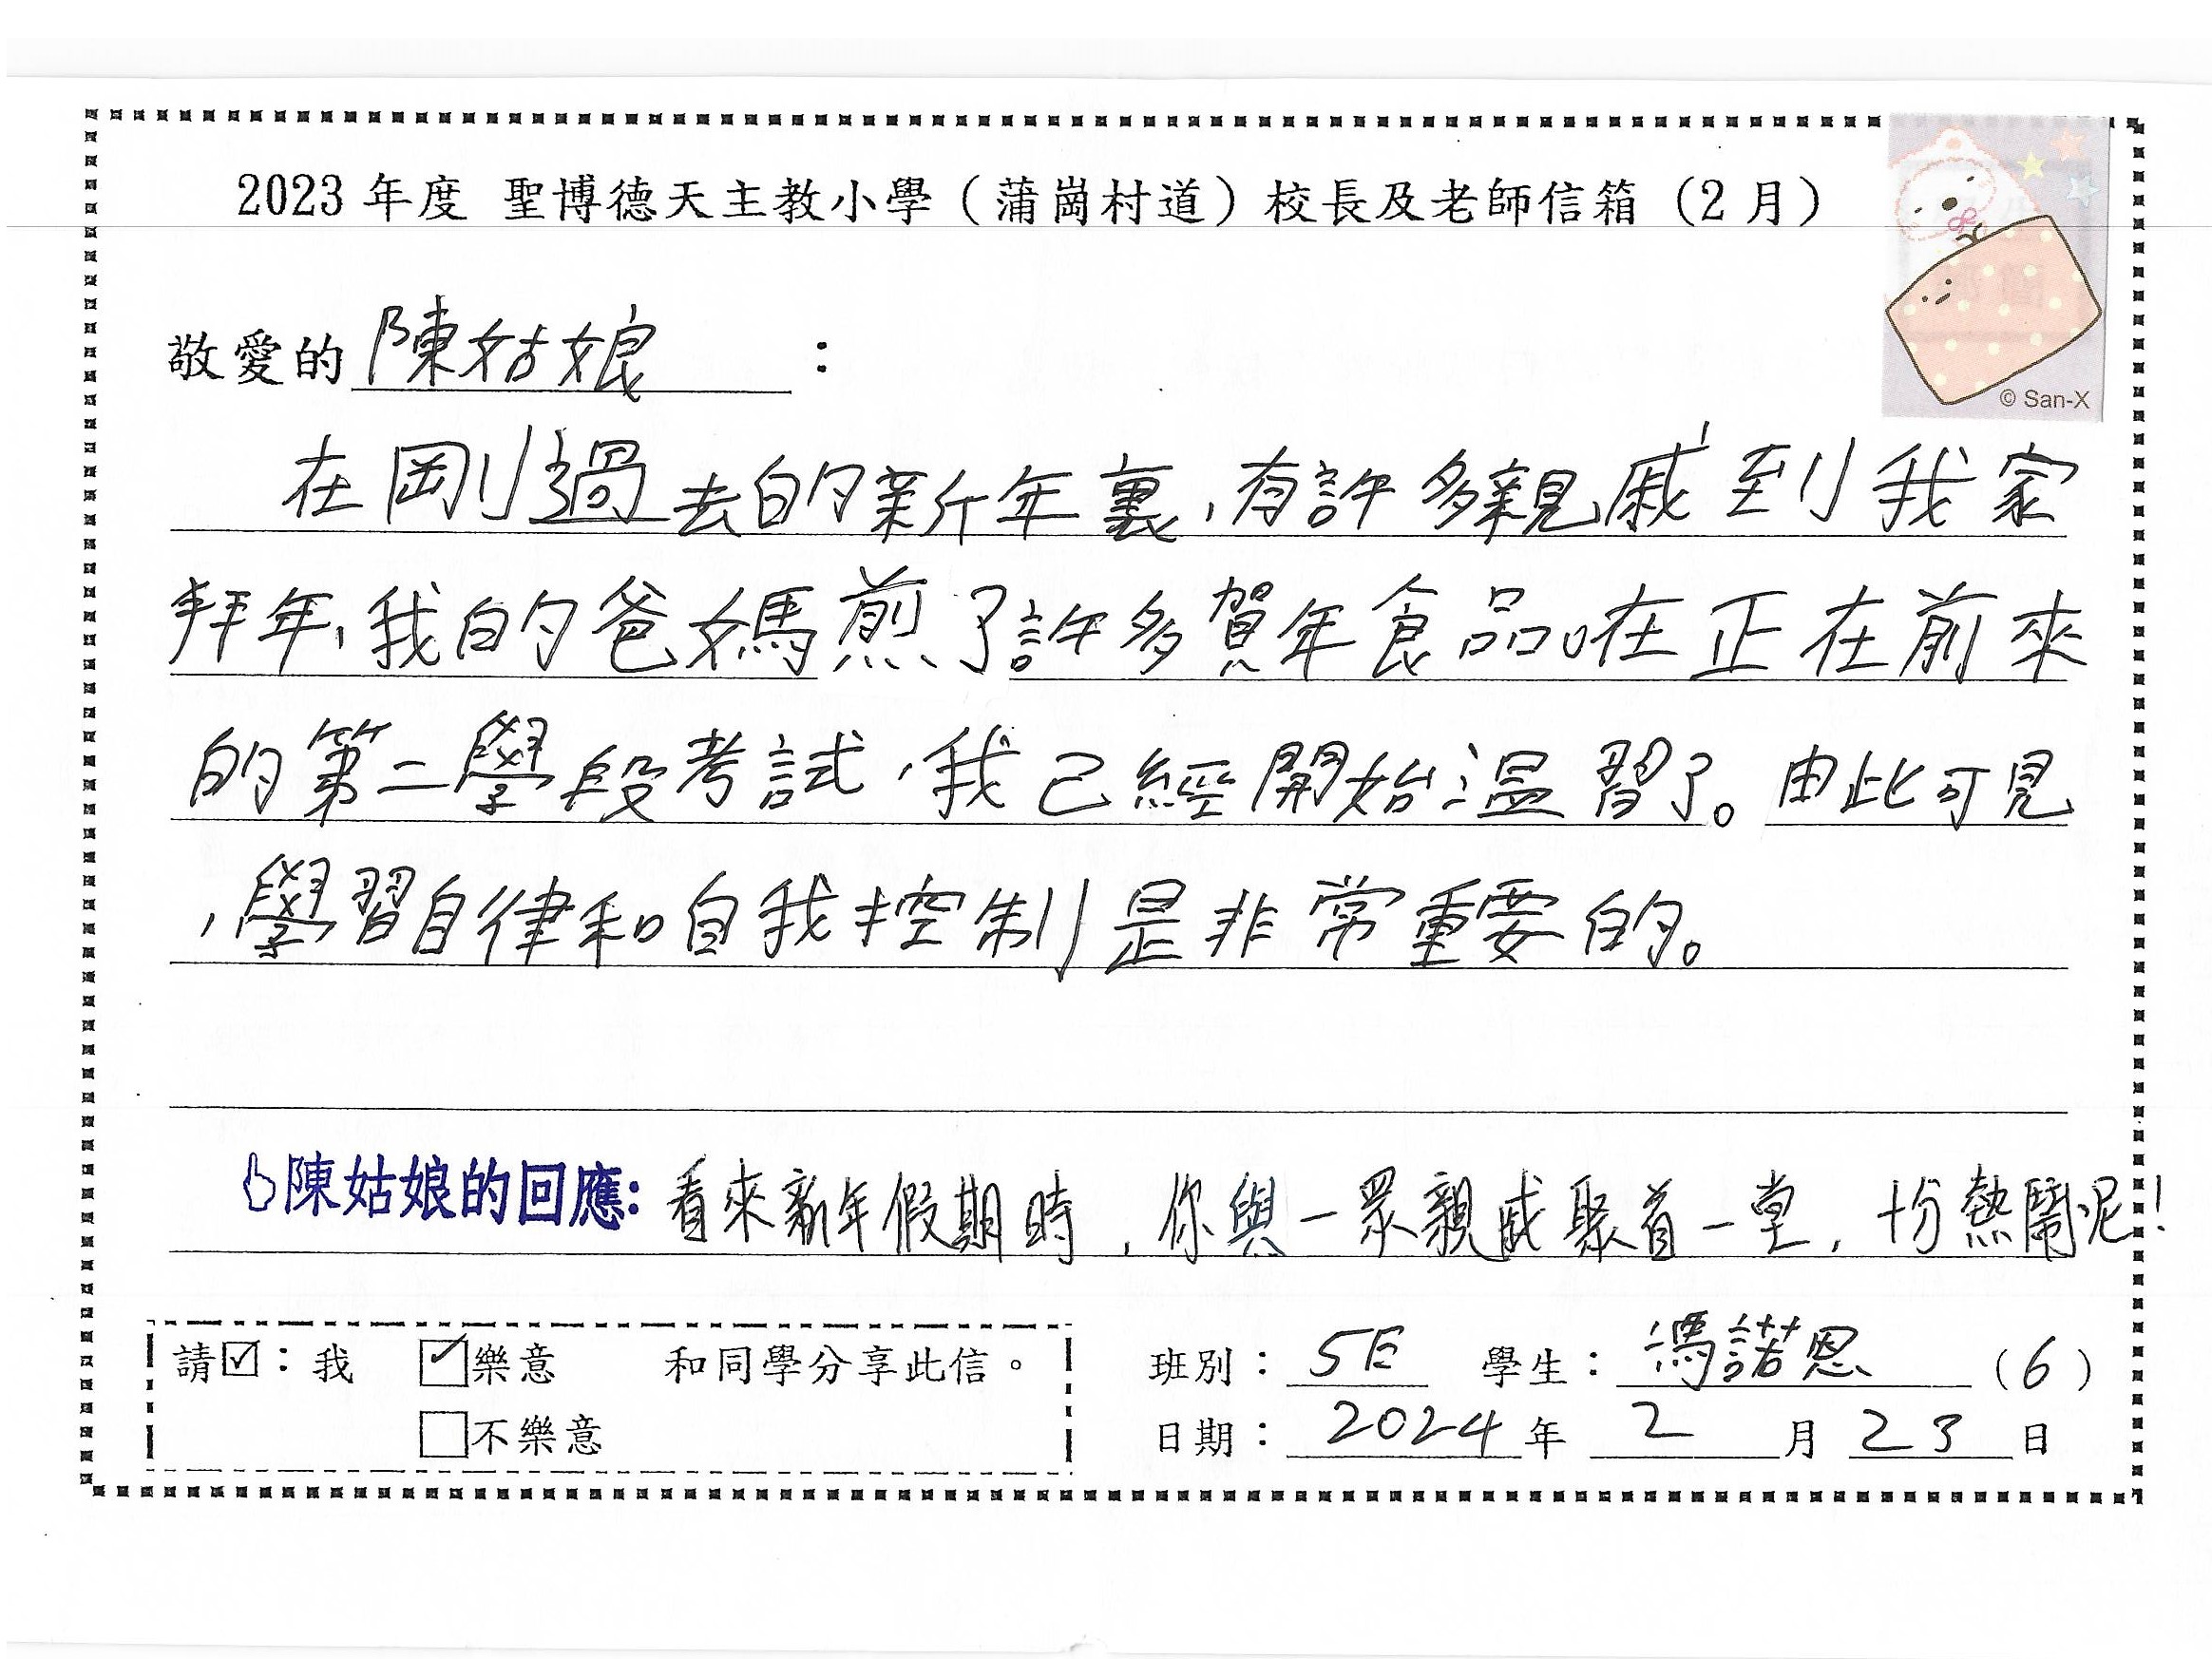 2023 年度 聖博德天主教小學（蒲崗村道）校長及老師信箱（2 月）
© San-X
敬愛的 陳姑娘 ：
在剛過去的新年裏，有許多親戚到我家
拜年，我的爸媽煎了許多賀年食品。在正在前來
的第二學段考試，我已經開始溫習了。由此可見
，學習自律和自我控制是非常重要的。
陳姑娘的回應：看來新年假期時，你與一眾親戚聚首一堂，十份熱鬧呢！
請☑：我 ☑樂意 和同學分享此信。
☐不樂意
班別：5E 學生：馮諾恩（6）
日期：2024 年 2 月 23 日